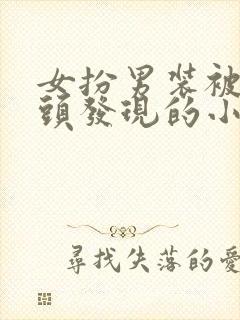 女扮男装被
頭發現的小
尋找失落的愛